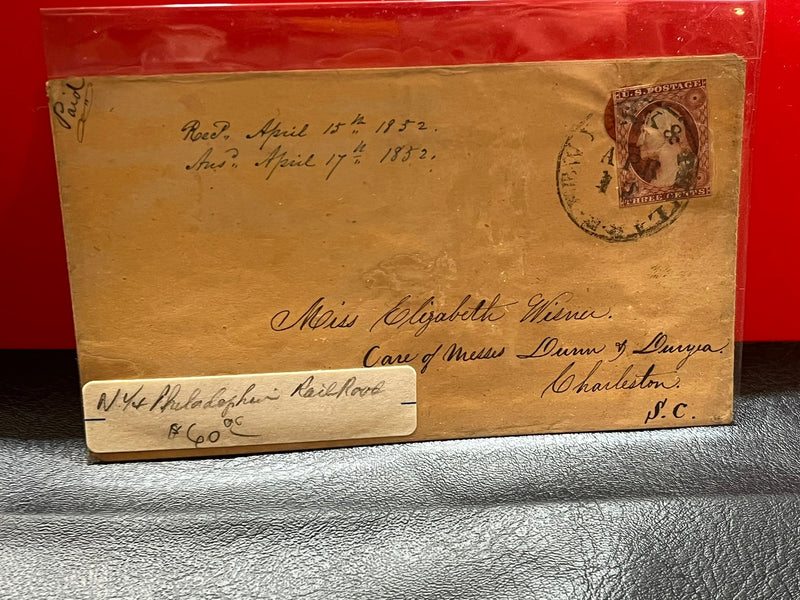 Paid
Recd. April 15th 1852.
Ansd. April 17th 1852.
U.S. POSTAGE
THREE CENTS
Miss Elizabeth Wisner.
Care of Messes Dunn & Duryea.
Charleston.
S.C.
N Y & Philadelphia RailRoad
$60.00